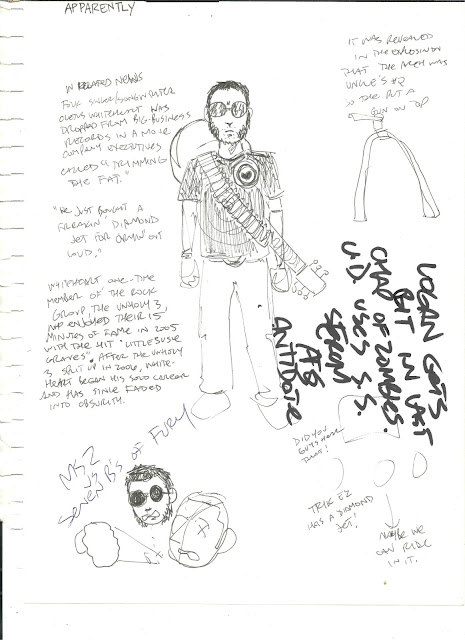 APPARENTLY
IN RELATED NEWS
FOLK SINGER/SONGWRITER
WHITEHEART WAS
DROPPED FROM BIG-BUSINESS
RECORDS IN A MOVE
COMPANY EXECUTIVES
CALLED "TRIMMING
THE FAT."
"HE JUST BOUGHT A
FREAKIN' DIAMOND
JET FOR CRYIN' OUT
LOUD,"
WHITEHEART ONE-TIME
MEMBER OF THE ROCK
GROUP, THE UNHOLY 3,
ENJOYED THEIR 15
MINUTES OF FAME IN 2005
WITH THE HIT "LITTLE SUSIE
GRAVES". AFTER THE UNHOLY
3 SPLIT UP IN 2006, WHITE-
HEART BEGAN HIS SOLO CAREER
AND HAS SINCE FADED
INTO OBSCURITY.
IT WAS REVEALED
IN THE EXPLOSION
THAT THE
UNCLE'S #2
PUT A
GUN ON TOP
LOGAN GETS
BIT IN LAST
CHAP OF ZOMBIES.
U.D. USES S.S.
SERUM
AS
ANTIDOTE
MS 2
SEVEN B'S OF FURY
DID YOU
GUYS HEAR
THAT!
TRIK EZ
HAS A DIAMOND
JET!
MAYBE WE
CAN RIDE
IN IT.